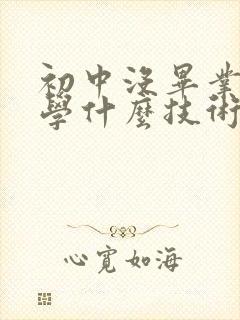 初中没畢業
學什麼技術
心寬如海